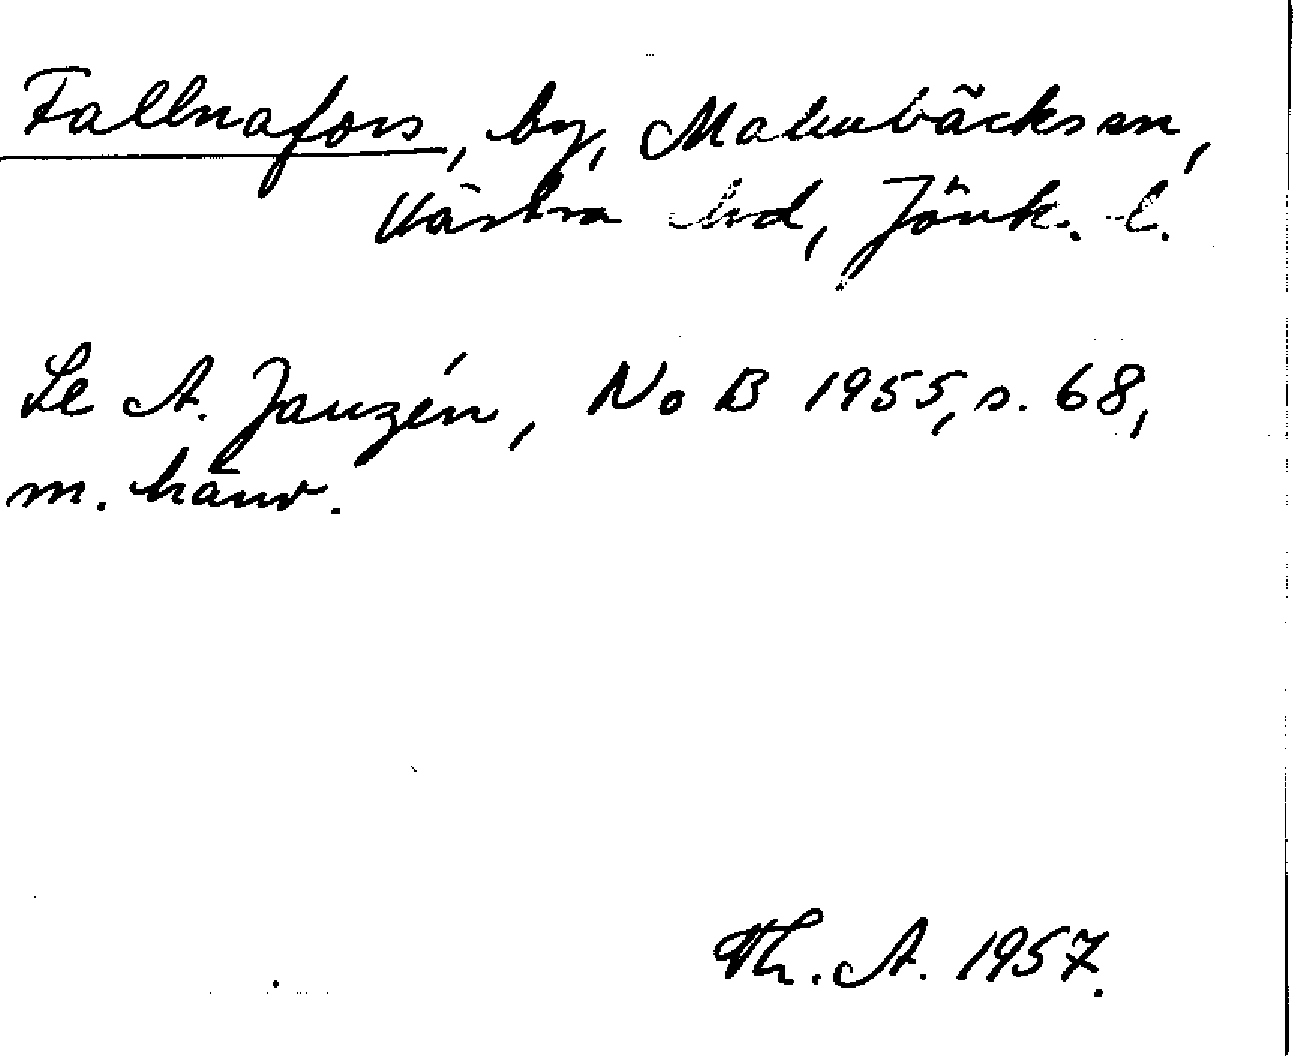 Fallnafors, by, Malmbäcks sn,
Västra hd, Jönk. l.
Se A. Janzén, NoB 1955, s. 68,
m. hänv.
Th. A. 1957.